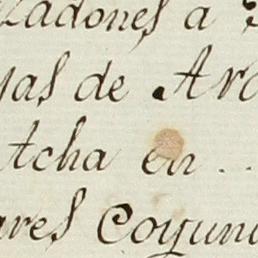 zadones a
jas de Ara
tcha en . .
ares Coyun